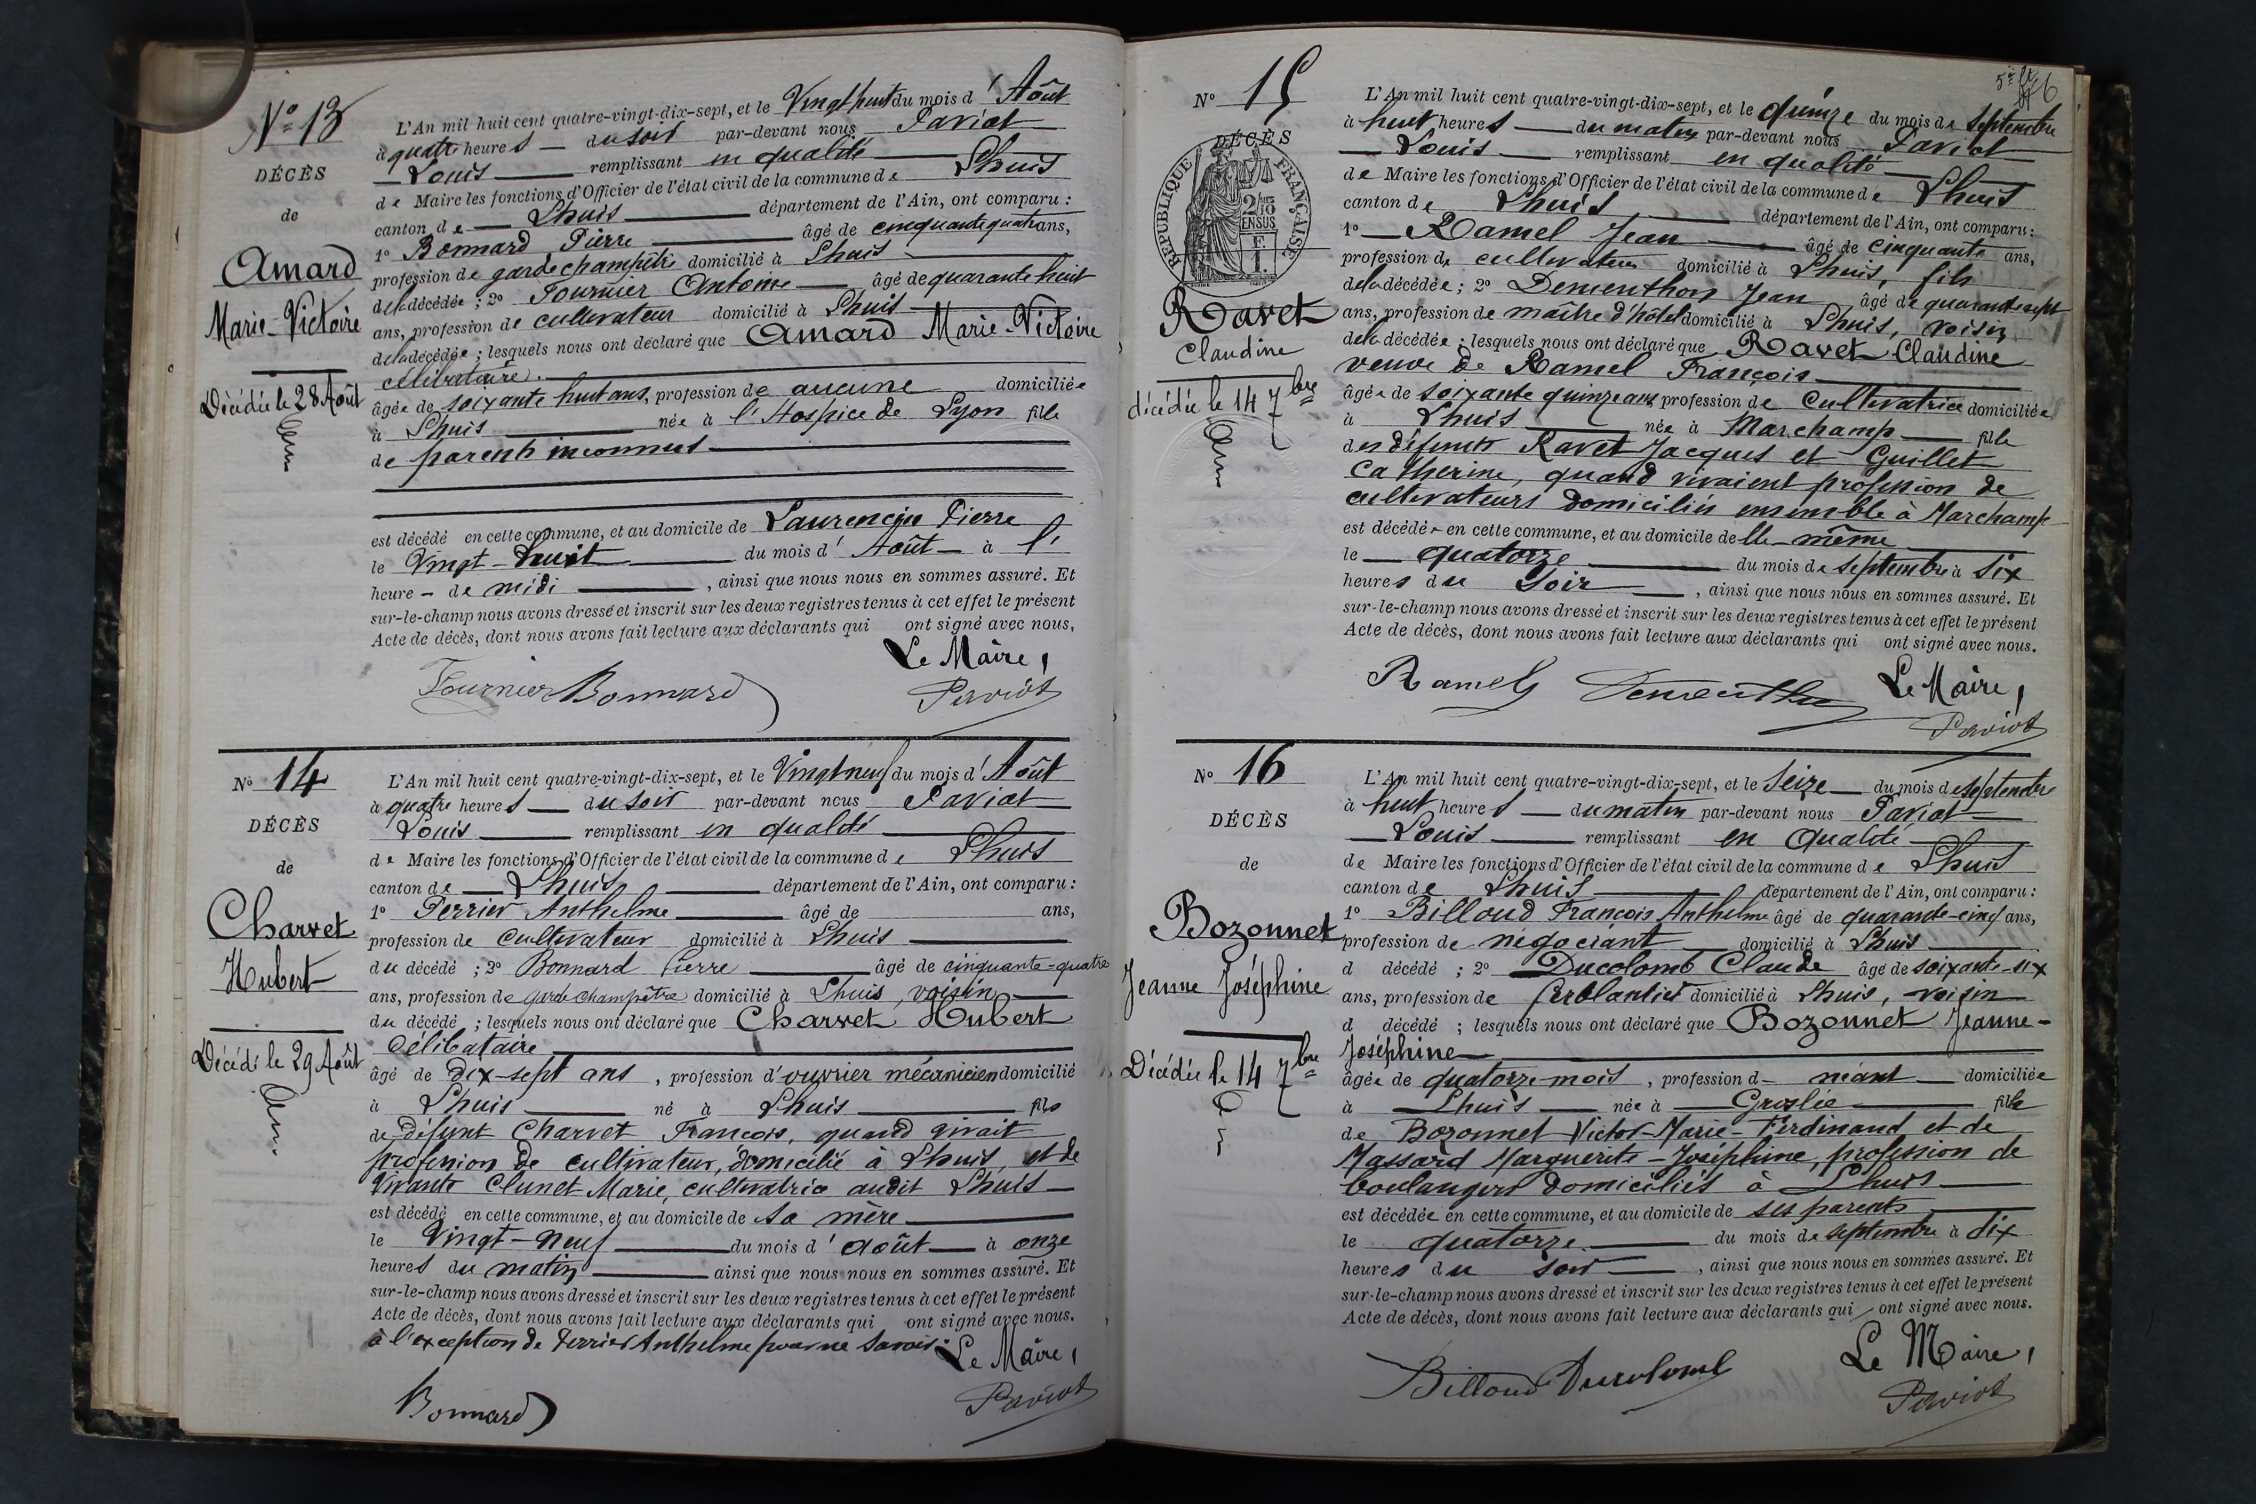 Nº 13
DÉCÈS
de
Amard
Marie-Victoire
Décédée le 28 Août
L'An mil huit cent quatre-vingt-dix-sept, et le Vingt huit du mois d' Août
à quatre heures du soir par-devant nous Paviot
Louis remplissant en qualité
de Maire les fonctions d'Officier de l'état civil de la commune de Lhuis
canton de Lhuis département de l'Ain, ont comparu :
1º Bonnard Pierre âgé de cinquante quatre ans,
profession de garde champêtre domicilié à Lhuis
de la décédée ; 2º Fournier Antoine âgé de quarante huit
ans, profession de cultivateur domicilié à Lhuis
de la décédée ; lesquels nous ont déclaré que Amard Marie-Victoire
célibataire
âgée de soixante huit ans, profession de aucune domiciliée
à Lhuis née à l'Hospice de Lyon fille
de parents inconnus
est décédé en cette commune, et au domicile de Laurencin Pierre
le Vingt-huit du mois d' Août à l'
heure de midi, ainsi que nous nous en sommes assuré. Et
sur-le-champ nous avons dressé et inscrit sur les deux registres tenus à cet effet le présent
Acte de décès, dont nous avons fait lecture aux déclarants qui ont signé avec nous,
Le Maire,
Fournier Bonnard Paviot
Nº 14
DÉCÈS
de
Charvet
Hubert
Décédé le 29 Août
L'An mil huit cent quatre-vingt-dix-sept, et le Vingt neuf du mois d' Août
à quatre heures du soir par-devant nous Paviot
Louis remplissant en qualité
de Maire les fonctions d'Officier de l'état civil de la commune de Lhuis
canton de Lhuis département de l'Ain, ont comparu :
1º Perrier Anthelme âgé de ans,
profession de cultivateur domicilié à Lhuis
du décédé ; 2º Bonnard Pierre âgé de cinquante-quatre
ans, profession de garde champêtre domicilié à Lhuis, voisin
du décédé ; lesquels nous ont déclaré que Charvet Hubert
Célibataire
âgé de dix-sept ans, profession d'ouvrier mécanicien domicilié
à Lhuis né à Lhuis fils
de défunt Charvet François, quand vivait
profession de cultivateur, domicilié à Lhuis, et de
Vivante Clunet Marie, cultivatrice audit Lhuis
est décédé en cette commune, et au domicile de sa mère
le Vingt-neuf du mois d' août à onze
heures du matin ainsi que nous nous en sommes assuré. Et
sur-le-champ nous avons dressé et inscrit sur les deux registres tenus à cet effet le présent
Acte de décès, dont nous avons fait lecture aux déclarants qui ont signé avec nous.
à l'exception de Perrier Anthelme pour ne savoir.
Le Maire,
Bonnard Paviot
Nº 15
DÉCÈS
RÉPUBLIQUE FRANÇAISE
2/10 EN SUS
Ravet
Claudine
décédée le 14 7bre
L'An mil huit cent quatre-vingt-dix-sept, et le quinze du mois de septembre
à huit heures du matin par-devant nous Paviot
Louis remplissant en qualité
de Maire les fonctions d'Officier de l'état civil de la commune de Lhuis
canton de Lhuis département de l'Ain, ont comparu :
1º Ramel Jean âgé de cinquante ans,
profession de cultivateur domicilié à Lhuis, fils
de la décédée ; 2º Dementhon Jean âgé de quarante sept
ans, profession de maître d'hôtel domicilié à Lhuis, voisin
de la décédée ; lesquels nous ont déclaré que Ravet Claudine
veuve de Ramel François
âgée de soixante quinze ans, profession de Cultivatrice domiciliée
à Lhuis née à Marchamp fille
des défunts Ravet Jacques et Guillet
Catherine, quand vivaient profession de
cultivateurs domiciliés ensemble à Marchamp
est décédée en cette commune, et au domicile de lle-même
le quatorze du mois de septembre à six
heures du soir, ainsi que nous nous en sommes assuré. Et
sur-le-champ nous avons dressé et inscrit sur les deux registres tenus à cet effet le présent
Acte de décès, dont nous avons fait lecture aux déclarants qui ont signé avec nous.
Ramel Dementhon Le Maire,
Paviot
Nº 16
DÉCÈS
de
Bozonnet
Jeanne Joséphine
Décédée le 14 7bre
L'An mil huit cent quatre-vingt-dix-sept, et le Seize du mois de septembre
à huit heures du matin par-devant nous Paviot
Louis remplissant en qualité
de Maire les fonctions d'Officier de l'état civil de la commune de Lhuis
canton de Lhuis département de l'Ain, ont comparu :
1º Billoud François Anthelme âgé de quarante-cinq ans,
profession de négociant domicilié à Lhuis
d décédé ; 2º Ducolomb Claude âgé de soixante-six
ans, profession de ferblantier domicilié à Lhuis, voisin
d décédé ; lesquels nous ont déclaré que Bozonnet Jeanne-
Joséphine
âgée de quatorze mois, profession d néant domiciliée
à Lhuis née à Groslée fille
de Bozonnet Victor-Marie-Ferdinand et de
Massard Marguerite-Joséphine, profession de
boulangers domiciliés à Lhuis
est décédée en cette commune, et au domicile de ses parents
le quatorze du mois de septembre à dix
heures du soir, ainsi que nous nous en sommes assuré. Et
sur-le-champ nous avons dressé et inscrit sur les deux registres tenus à cet effet le présent
Acte de décès, dont nous avons fait lecture aux déclarants qui ont signé avec nous.
Le Maire,
Billoud Ducolomb Paviot